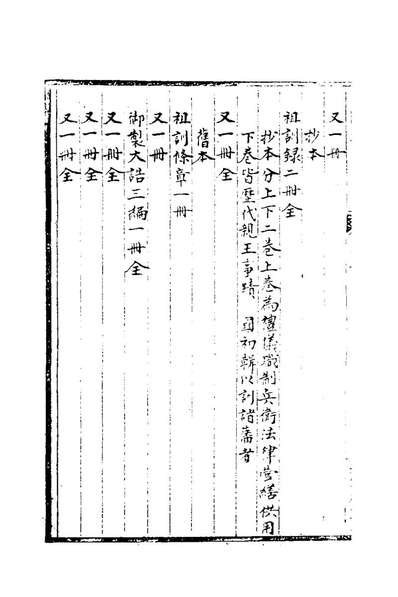 又一冊
抄本
祖訓録二冊全
抄本分上下二卷上卷為禮儀職制兵衛法律營繕供用
下卷皆歷代親王事蹟 國初輯以訓諸藩者
又一冊全
舊本
祖訓條章一冊
又一冊
御製大誥三編一冊全
又一冊全
又一冊全
又一冊全